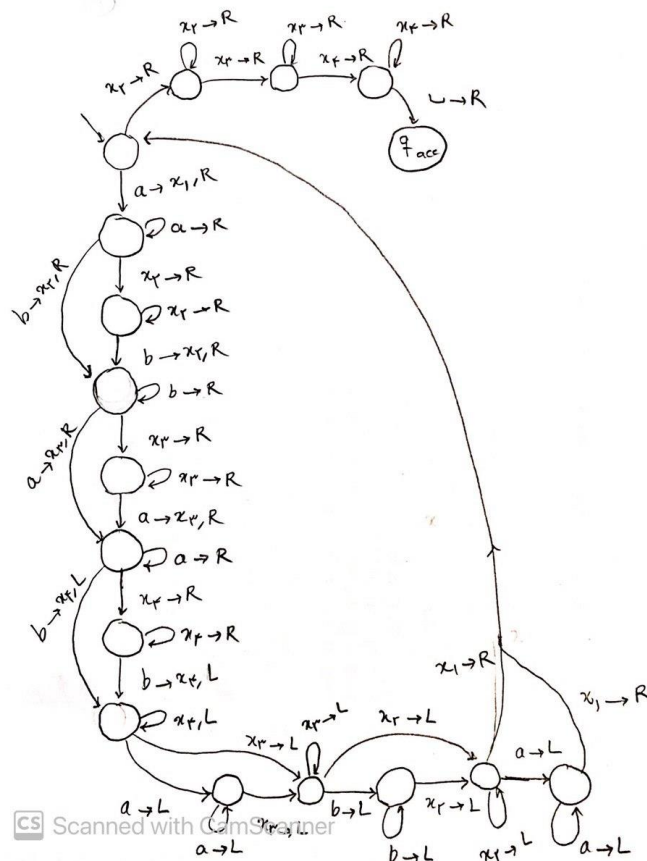 x۲→R
x۳→R
x۴→R
x۲→R
x۳→R
x۴→R
⊔→R
q acc
a→x۱,R
a→R
b→x۲,R
x۲→R
x۲→R
b→x۲,R
b→R
a→x۳,R
x۳→R
x۳→R
a→x۳,R
a→R
b→x۴,L
x۴→R
x۴→R
b→x۴,L
x۴,L
x۱→R
x۱→R
x۳→L
x۳→L
x۲→L
a→L
a→L
b→L
x۲→L
a→L
b→L
x۲→L
a→L
CS Scanned with CamScanner